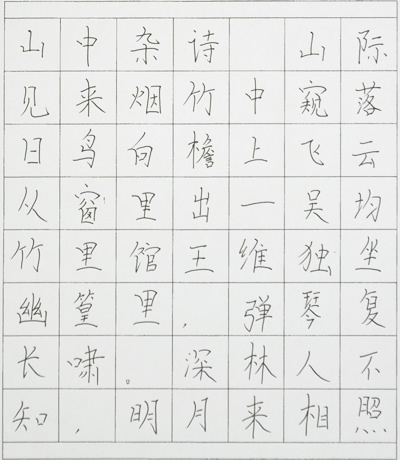 山中杂诗 山际
见来烟竹中窥落
日鸟向檐上飞云
从窗里出一吴均
竹里馆王维独坐
幽篁里，弹琴复
长啸。深林人不
知，明月来相照